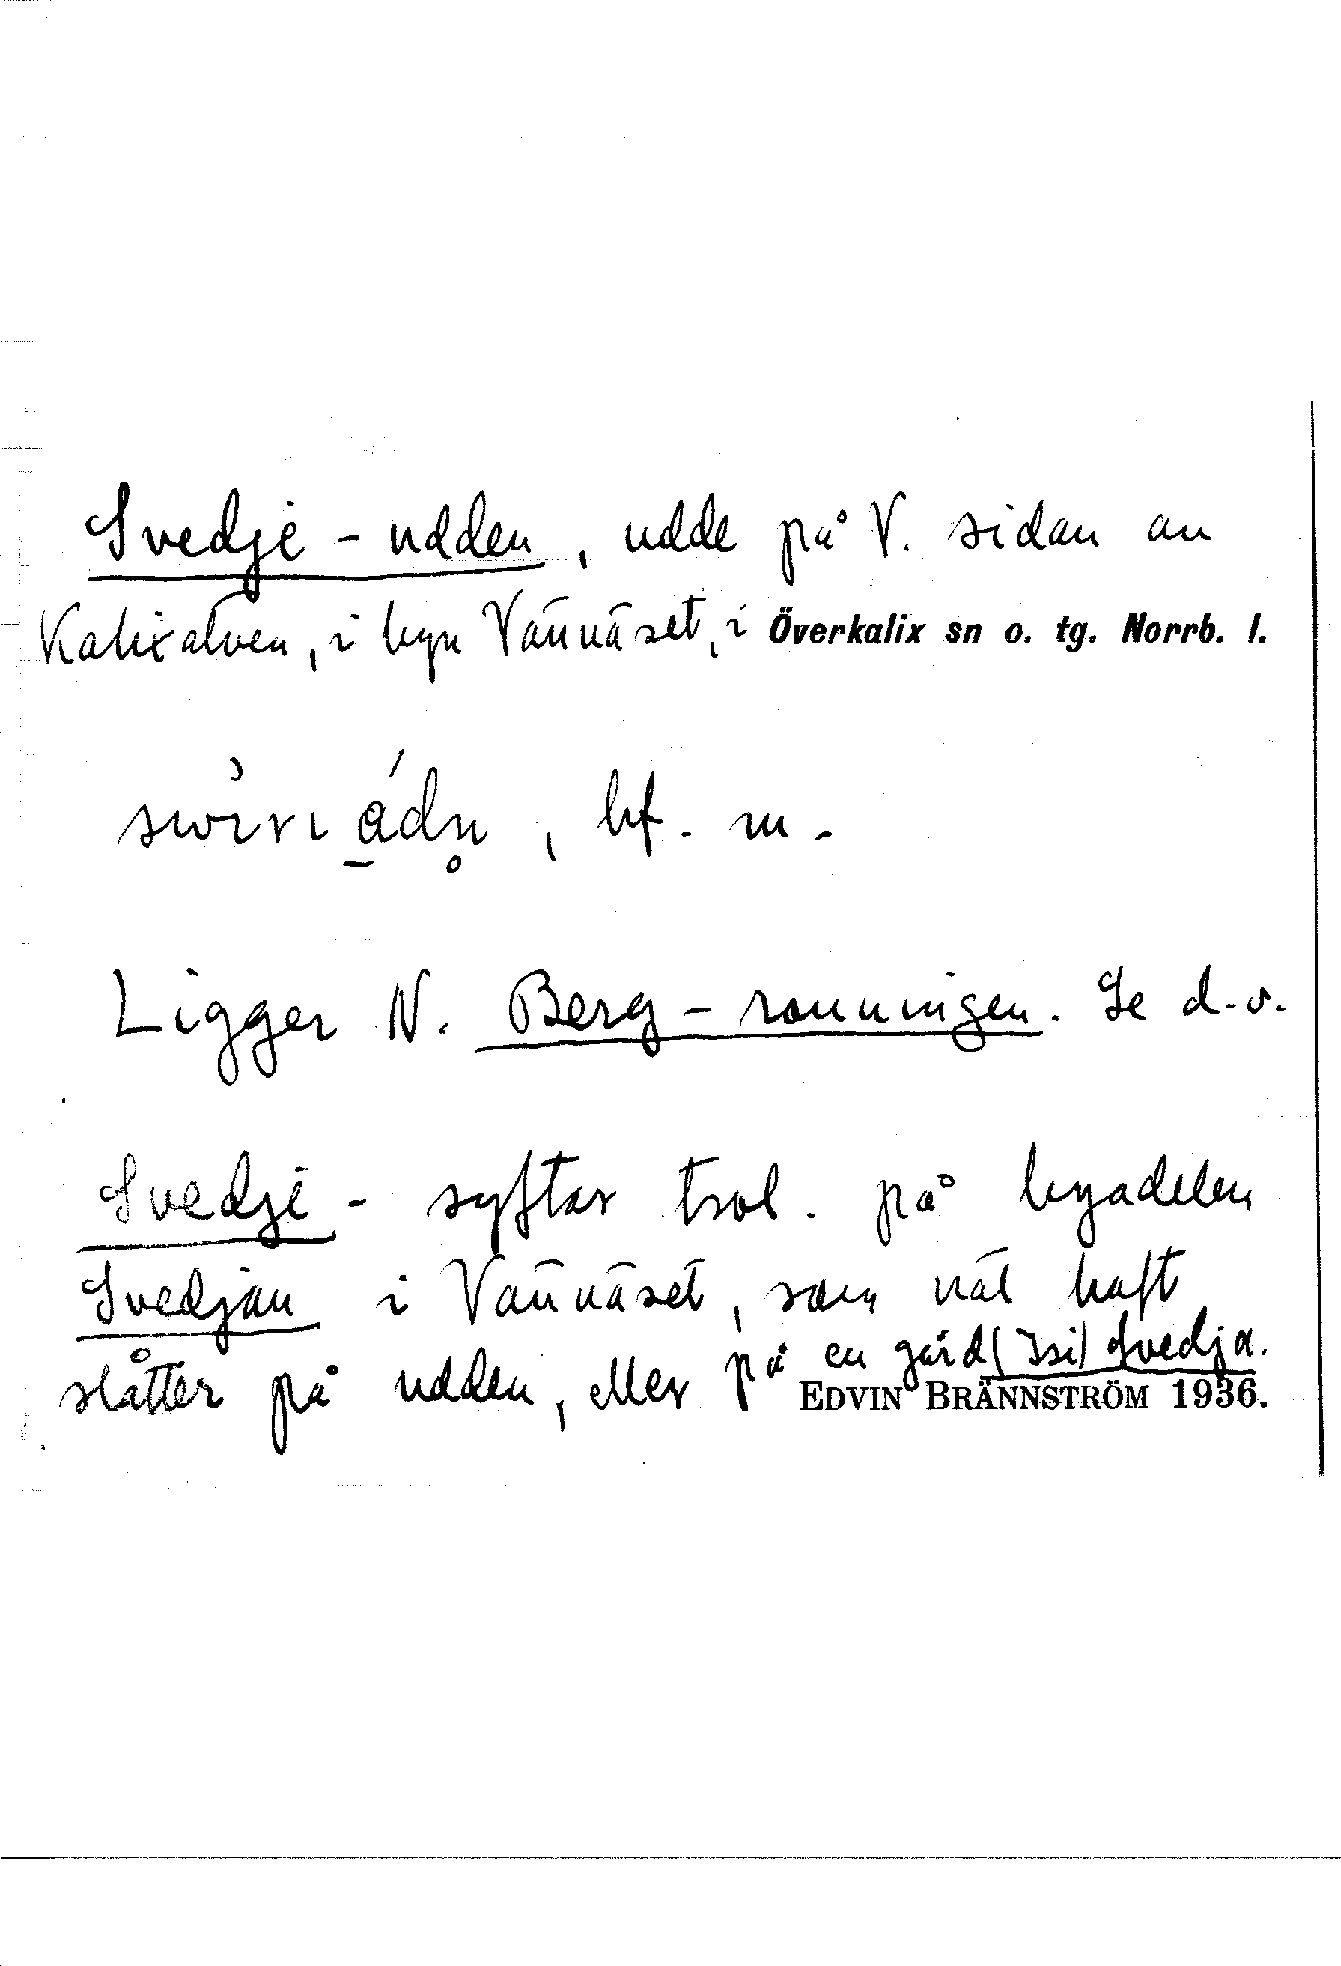 Svedje-udden, udde på V. sidan av
Kalixälven, i byn Vännäset, i Överkalix sn o. tg. Norrb. l.
bf. m.
Ligger N. Berg-rönningen. Se d.o.
Svedje- syftar trol. på byadelen
Svedjan i Vännäset, som väl haft
slåtter på udden, eller på en gård (Isi) Svedja.
EDVIN BRÄNNSTRÖM 1936.